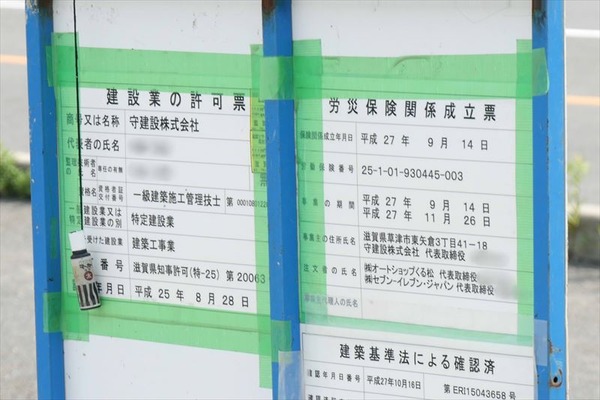 建設業の許可票
商号又は名称 守建設株式会社
代表者の氏名
一級建築施工管理技士
資格者証
交付番号
一般建設業又は
特定建設業の別 特定建設業
受けた建設業 建築工事業
番号 滋賀県知事許可(特-25) 第20063
月日 平成 25年 8月28日
労災保険関係成立票
保険関係成立年月日 平成 27年 9月 14日
労働保険番号 25-1-01-930445-003
事業の期間 平成 27年 9月 14日
平成 27年 11月 26日
事業主の住所氏名 滋賀県草津市東矢倉3丁目41-18
守建設株式会社 代表取締役
注文者の氏名 ㈱オートショップくる松 代表取締役
㈱セブン-イレブン・ジャパン 代表取締役
代理人の氏名
建築基準法による確認済
確認年月日番号 平成27年10月16日 第ERI15043658号